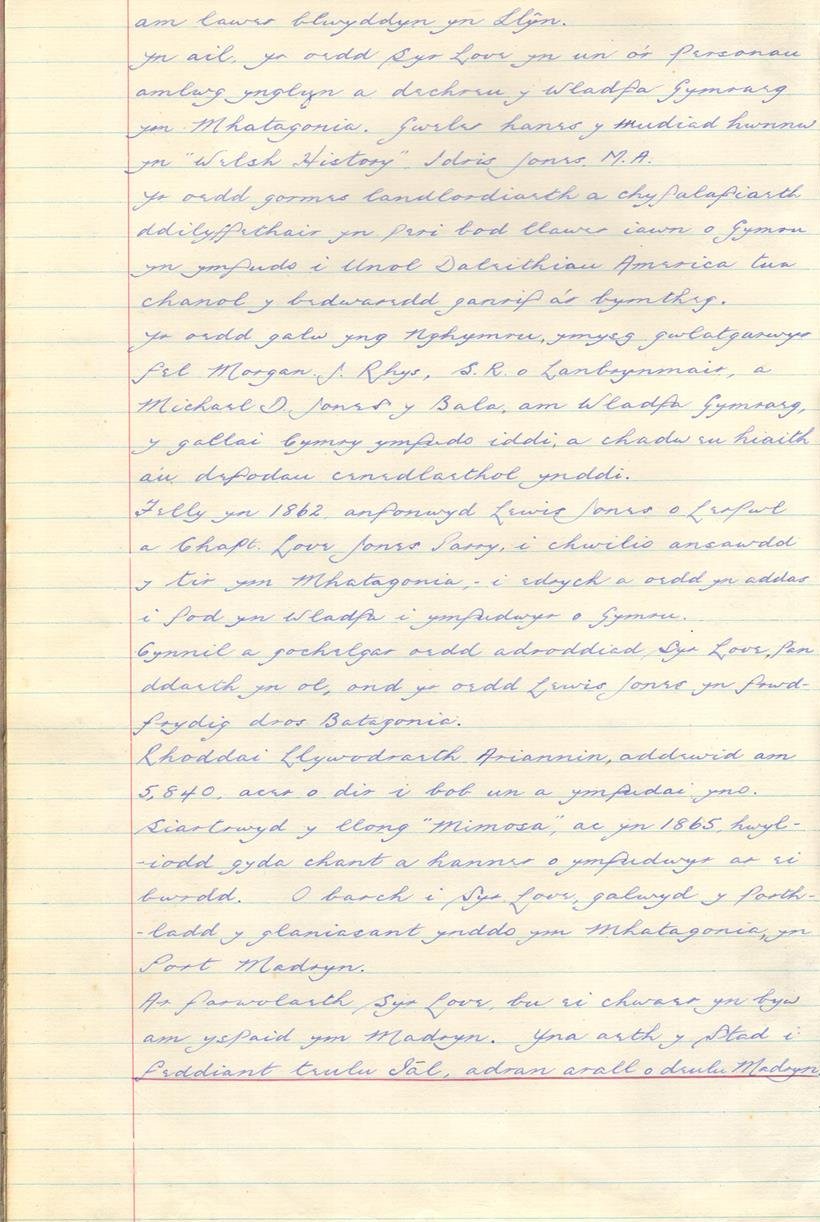 am lawer blwyddyn yn Llŷn.
Yn ail, yr oedd Syr Love yn un o'r personau
amlwg ynglyn a dechreu y Wladfa Gymraeg
ym Mhatagonia. Gweler hanes y mudiad hwnnw
yn "Welsh History" Idris Jones, M.A.
Yr oedd gormes landlordiaeth a chyfalafiaeth
ddilyffethair yn peri bod llawer iawn o Gymru
yn ymfudo i Unol Daleithiau America tua
chanol y bedwaredd ganrif ár bymtheg.
Yr oedd galw yng Nghymru, ymysg gwlatgarwyr
fel Morgan. J. Rhys, S.R. o Lanbrynmair, a
Michael D. Jones y Bala, am Wladfa Gymraeg,
y gallai Cymry ymfudo iddi, a chadw eu hiaith
a'u defodau cenedlaethol ynddi.
Felly yn 1862 anfonwyd Lewis Jones o Lerpwl
a Chapt. Love Jones Parry, i chwilio ansawdd
y tir ym Mhatagonia, - i edrych a oedd yn addas
i fod yn Wladfa i ymfudwyr o Gymru.
Cynnil a gochelgar oedd adroddiad Syr Love, pan
ddaeth yn ol, ond yr oedd Lewis Jones yn frwd-
frydig dros Batagonia.
Rhoddai Llywodraeth Ariannin, addewid am
5,840. acer o dir i bob un a ymfudai yno.
Siartrwyd y llong "Mimosa", ac yn 1865, hwyl-
-iodd gyda chant a hanner o ymfudwyr ar ei
bwrdd. O barch i Syr Love, galwyd y porth-
-ladd y glaniasant ynddo ym Mhatagonia, yn
Port Madryn.
Ar farwolaeth Syr Love, bu ei chwaer yn byw
am yspaid ym Madryn. Yna aeth y Stad i
feddiant teulu Iâl, adran arall o deulu Madryn.